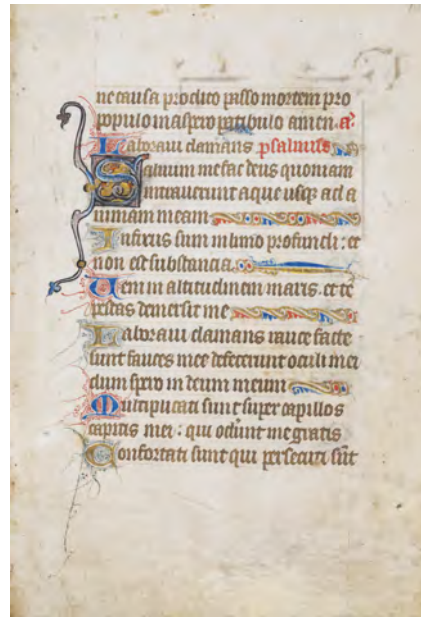 ne causa prodito passo mortem pro
populo in aspero patibulo amen. a͛
Laboraui clamans psalmus
Saluum me fac deus quoniam
intrauerunt aque usqꝫ ad a
nimam meam
Infixus sum in limo profundi: et
non est substancia.
Ueni in altitudinem maris. et tē
pestas demersit me
Laboraui clamans rauce facte
sunt fauces mee defecerunt oculi mei
dum spero in deum meum
Multiplicati sunt super capillos
capitis mei: qui oderunt me gratis
Confortati sunt qui persecuti sūt